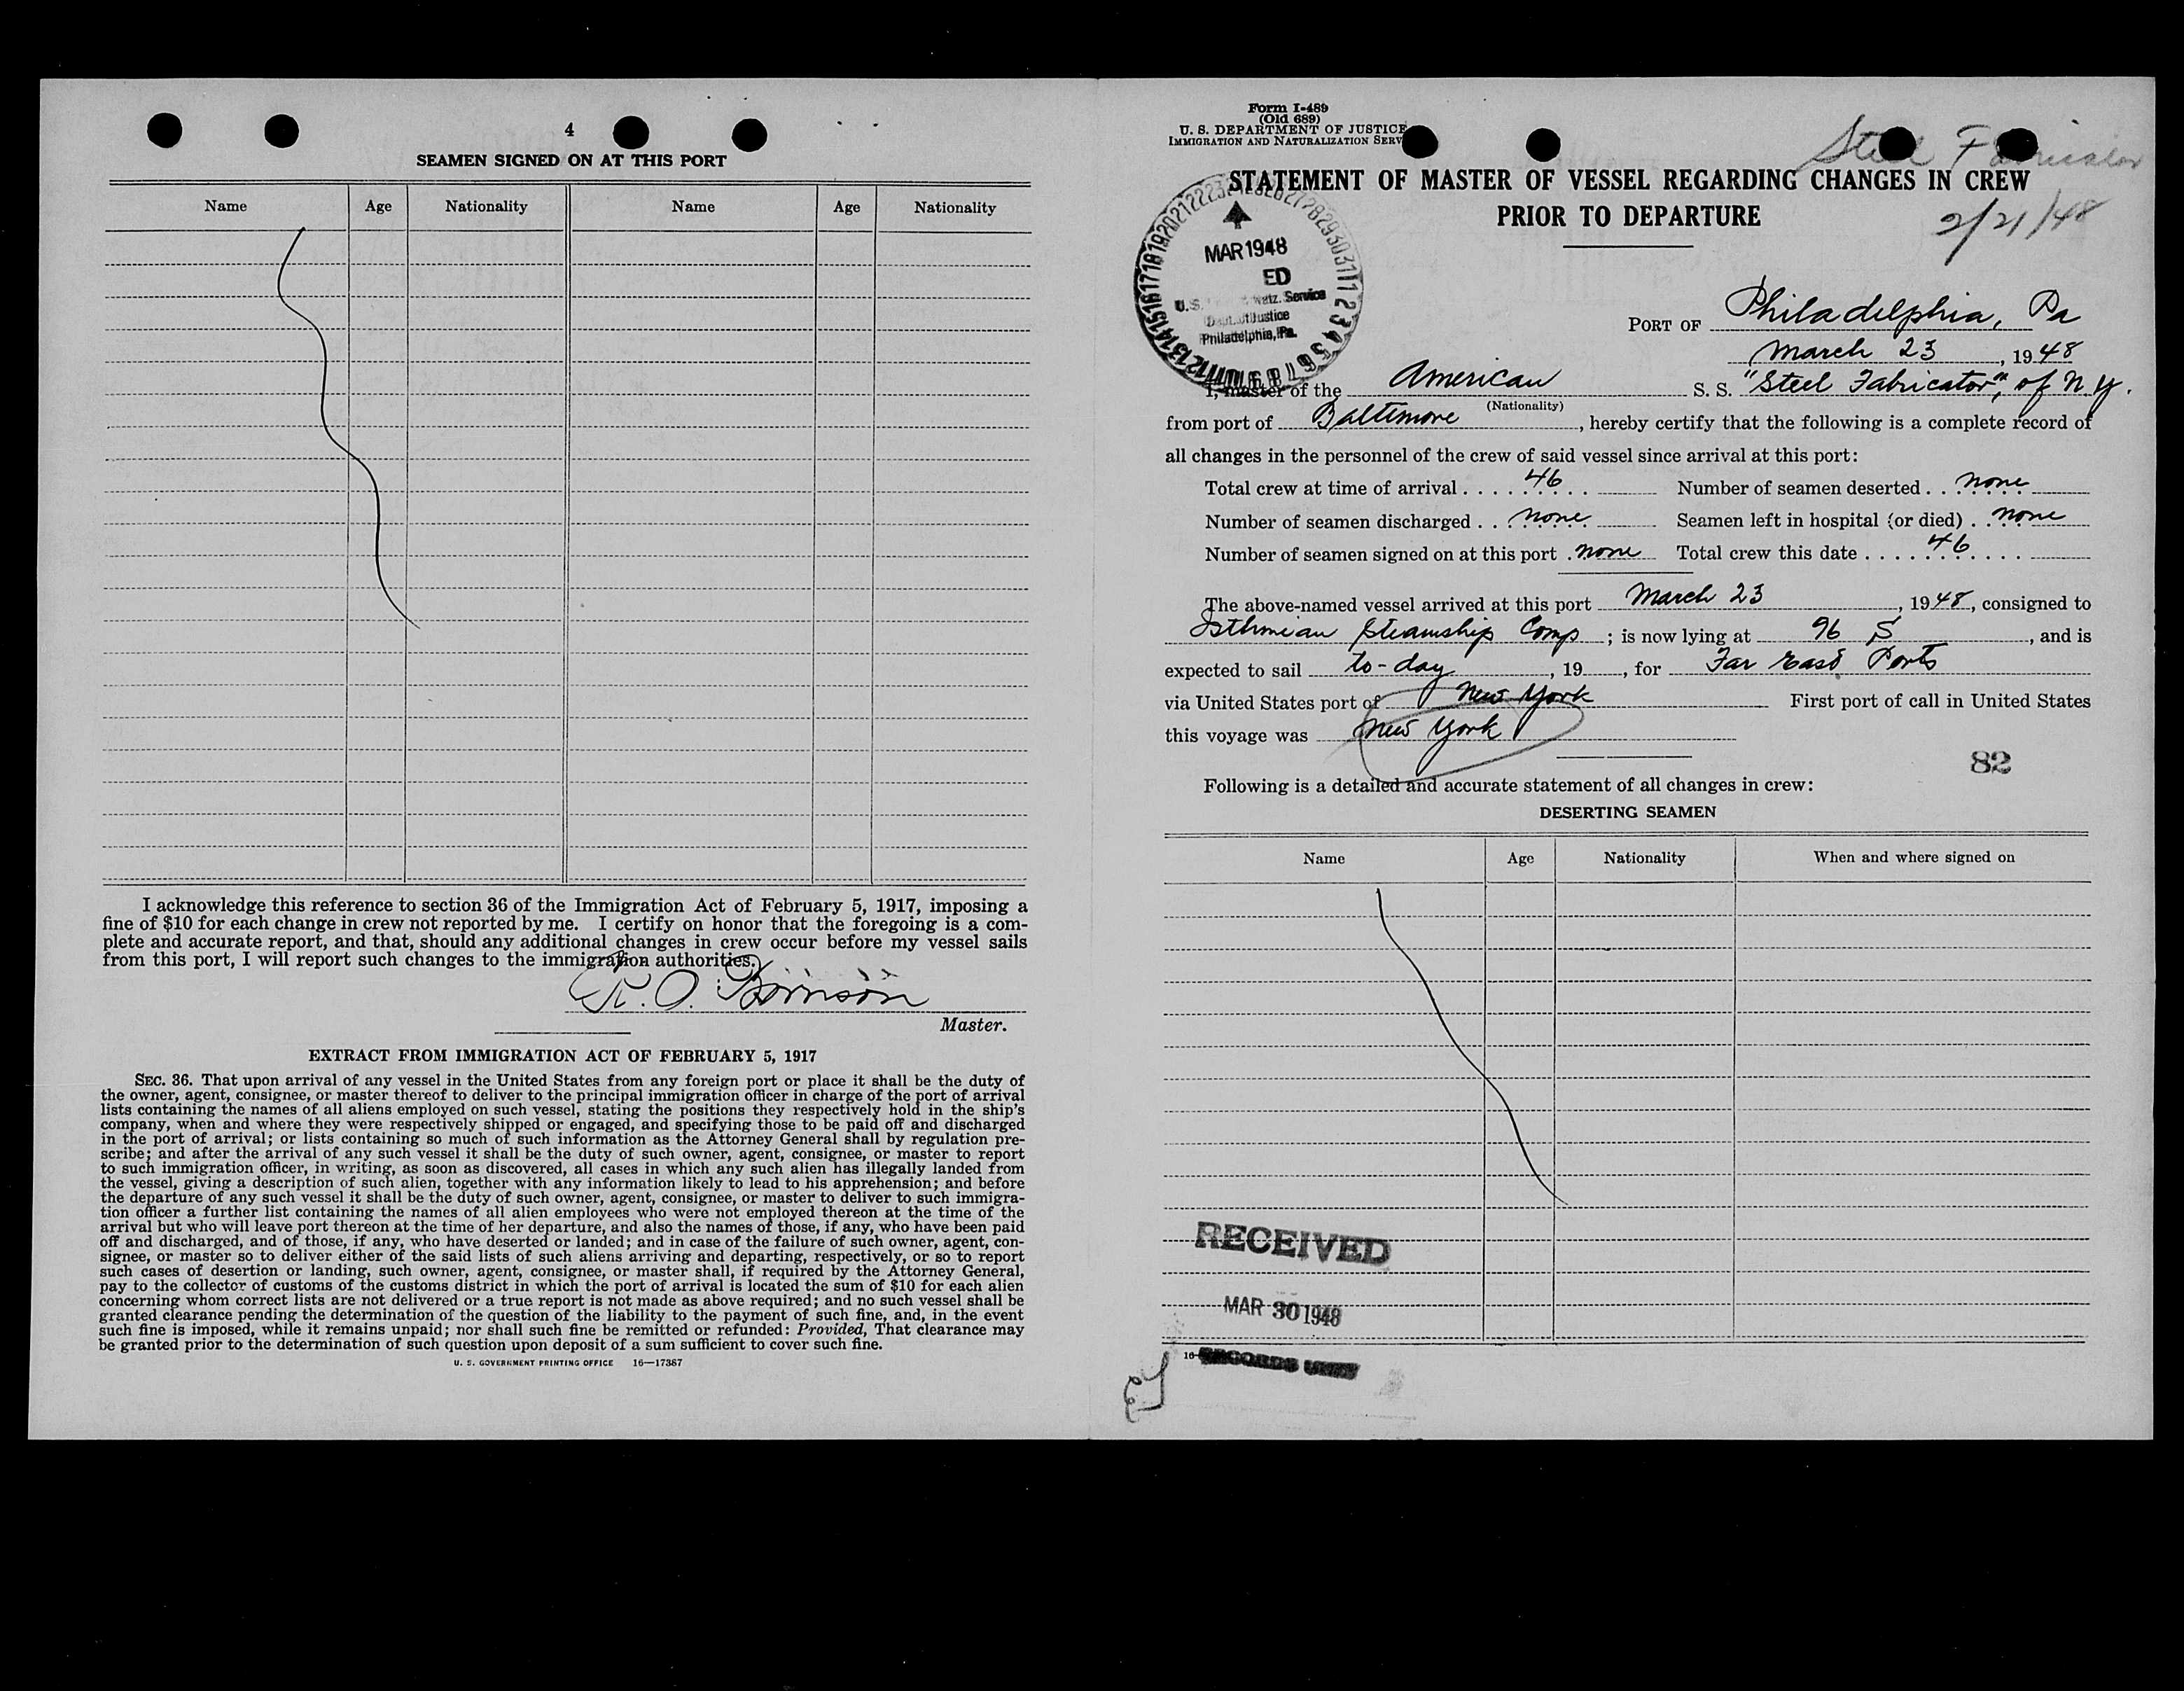 4
SEAMEN SIGNED ON AT THIS PORT
Name Age Nationality Name Age Nationality
I acknowledge this reference to section 36 of the Immigration Act of February 5, 1917, imposing a
fine of $10 for each change in crew not reported by me. I certify on honor that the foregoing is a com-
plete and accurate report, and that, should any additional changes in crew occur before my vessel sails
from this port, I will report such changes to the immigration authorities.
R. O.
Master.
EXTRACT FROM IMMIGRATION ACT OF FEBRUARY 5, 1917
SEC. 36. That upon arrival of any vessel in the United States from any foreign port or place it shall be the duty of
the owner, agent, consignee, or master thereof to deliver to the principal immigration officer in charge of the port of arrival
lists containing the names of all aliens employed on such vessel, stating the positions they respectively hold in the ship's
company, when and where they were respectively shipped or engaged, and specifying those to be paid off and discharged
in the port of arrival; or lists containing so much of such information as the Attorney General shall by regulation pre-
scribe; and after the arrival of any such vessel it shall be the duty of such owner, agent, consignee, or master to report
to such immigration officer, in writing, as soon as discovered, all cases in which any such alien has illegally landed from
the vessel, giving a description of such alien, together with any information likely to lead to his apprehension; and before
the departure of any such vessel it shall be the duty of such owner, agent, consignee, or master to deliver to such immigra-
tion officer a further list containing the names of all alien employees who were not employed thereon at the time of the
arrival but who will leave port thereon at the time of her departure, and also the names of those, if any, who have been paid
off and discharged, and of those, if any, who have deserted or landed; and in case of the failure of such owner, agent, con-
signee, or master so to deliver either of the said lists of such aliens arriving and departing, respectively, or so to report
such cases of desertion or landing, such owner, agent, consignee, or master shall, if required by the Attorney General,
pay to the collector of customs of the customs district in which the port of arrival is located the sum of $10 for each alien
concerning whom correct lists are not delivered or a true report is not made as above required; and no such vessel shall be
granted clearance pending the determination of the question of the liability to the payment of such fine, and, in the event
such fine is imposed, while it remains unpaid; nor shall such fine be remitted or refunded: Provided, That clearance may
be granted prior to the determination of such question upon deposit of a sum sufficient to cover such fine.
U. S. GOVERNMENT PRINTING OFFICE 16—17387
Form I-489
(Old 689)
U. S. DEPARTMENT OF JUSTICE
IMMIGRATION AND NATURALIZATION SERV
Steel Fabricator
STATEMENT OF MASTER OF VESSEL REGARDING CHANGES IN CREW
PRIOR TO DEPARTURE
2/21/48
MAR 1948
ED
U.S. Natz. Service
Dept. of Justice
Philadelphia, Pa.
PORT OF Philadelphia, Pa
March 23, 1948
I, master of the American S. S. "Steel Fabricator", of N.Y.
(Nationality)
from port of Baltimore, hereby certify that the following is a complete record of
all changes in the personnel of the crew of said vessel since arrival at this port:
Total crew at time of arrival . . . . 46 Number of seamen deserted . . none
Number of seamen discharged . . none Seamen left in hospital (or died) . . none
Number of seamen signed on at this port . none Total crew this date . . . . 46
The above-named vessel arrived at this port March 23, 1948, consigned to
Isthmian Steamship Comp; is now lying at 96 S, and is
expected to sail to-day, 19 , for Far East Ports
via United States port of New York First port of call in United States
this voyage was New York
82
Following is a detailed and accurate statement of all changes in crew:
DESERTING SEAMEN
Name Age Nationality When and where signed on
RECEIVED
MAR 30 1948
16—
RECORDS UNIT